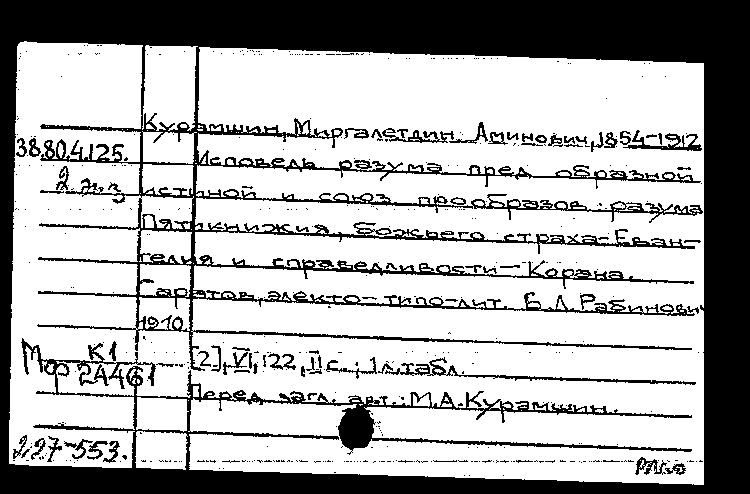 Курамшин, Миргалетдин Аминович, 1854-1912
38.80.4.125. Исповедь разума пред образной
2 экз истиной и союз прообразов: разума
Пятикнижия, Божьего страха-Еван-
гелия и справедливости-Корана.
Саратов, электо-типо-лит. Б.Л. Рабинович
1910
К1 [2], VI, 122, II с.; 1 л. табл.
Мор 2А461
Перед загл. авт.: М.А. Курамшин.
227-553.